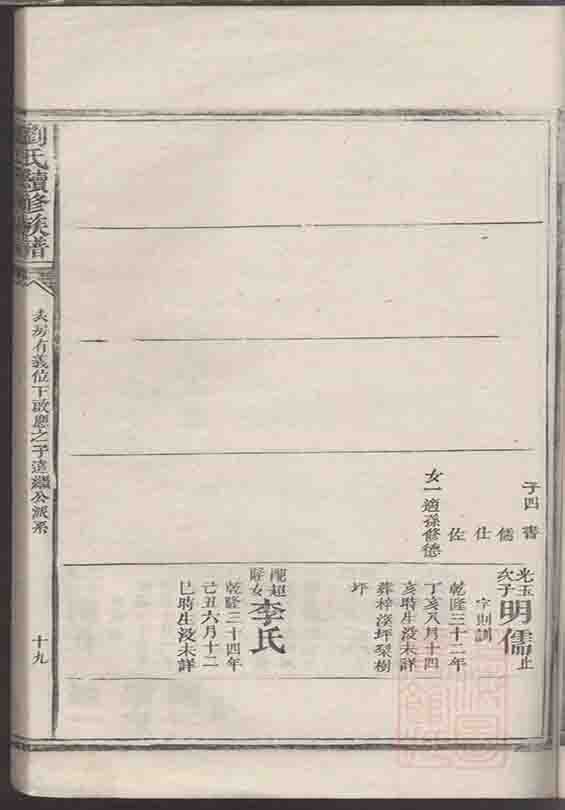 子四 書
儒
仕
佐
女一適孫修德
光玉
次子
明儒
止
字則訓
乾隆三十二年
丁亥八月十四
亥時生没未詳
葬梓溪坪梨樹
坪
女
李氏
乾隆三十四年
己丑六月十二
巳時生没未詳
劉氏續修族譜
房有義位下啟應之子達繼公派系
十九